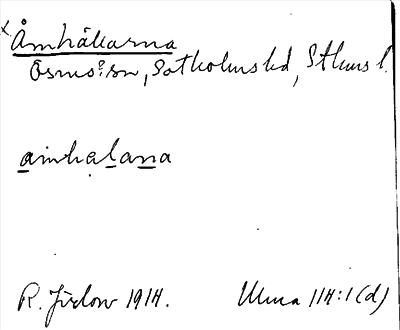 x Åmhällarna
Ösmo sn, Sotholms hd, Sthms l.
ạmhạḷana
R. Jirlow 1914. Ulma 114:1 (d)